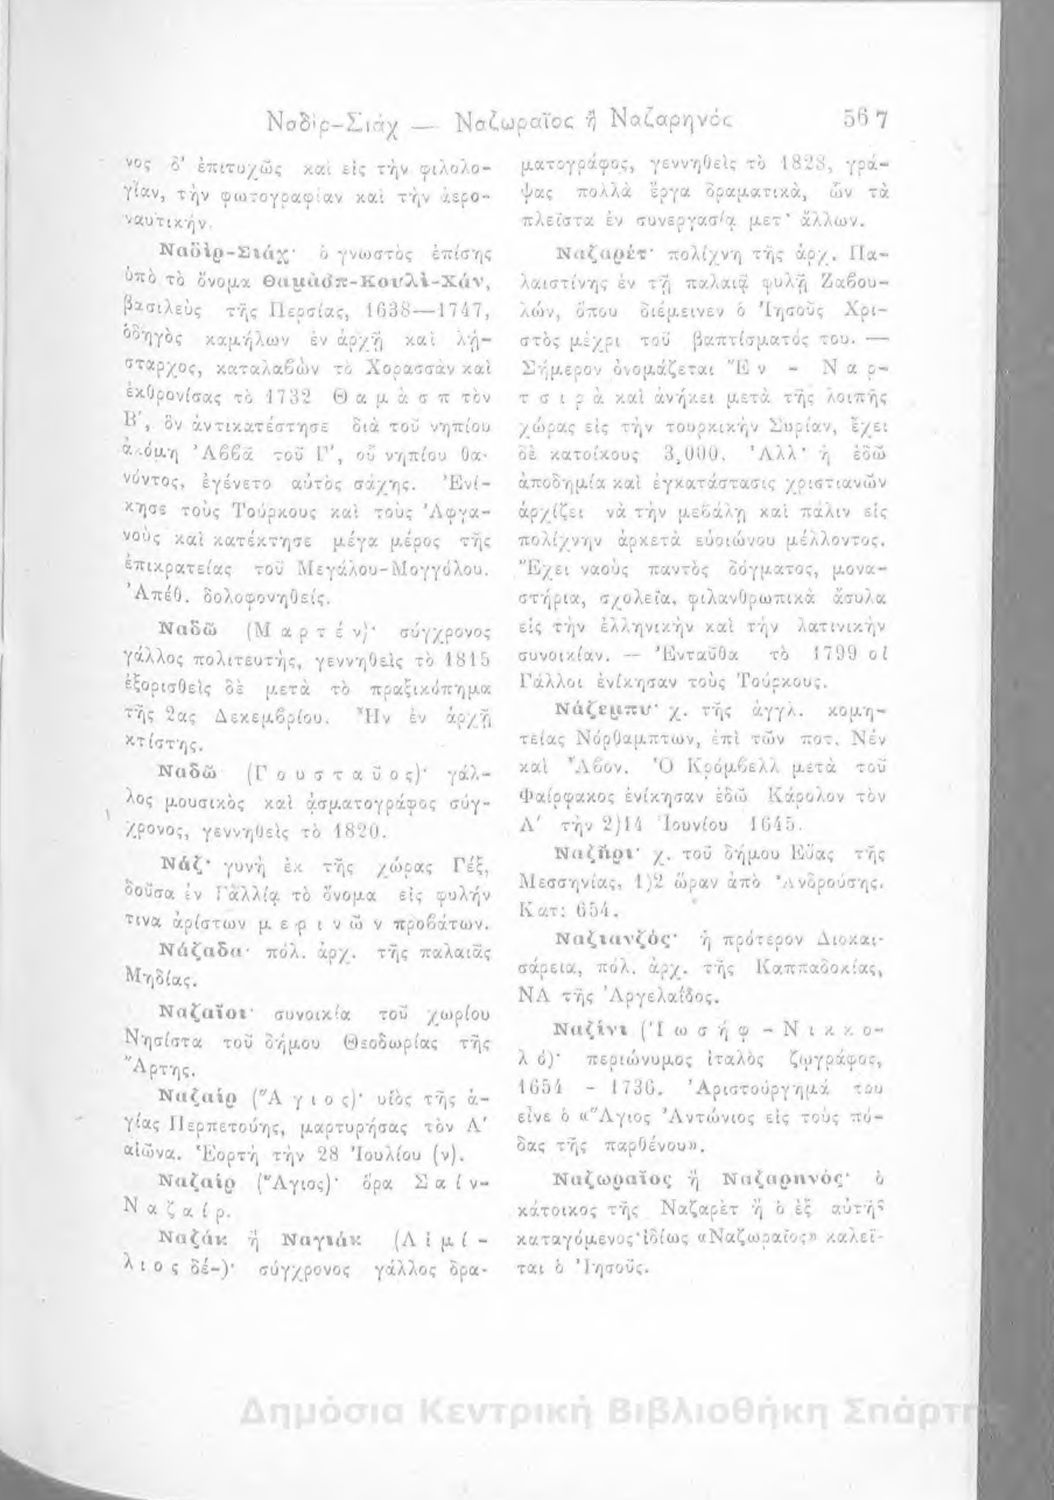 Ναδὶρ-Σιάχ — Ναζωραῖος ἢ Ναζαρηνός 567
νος δ' ἐπιτυχῶς καὶ εἰς τὴν φιλολο-
γίαν, τὴν φωτογραφίαν καὶ τὴν ἀερο-
ναυτικήν.
Ναδὶρ-Σιάχ· ὁ γνωστὸς ἐπίσης
ὑπὸ τὸ ὄνομα Θαμὰσπ-Κουλὶ-Χάν,
βασιλεὺς τῆς Περσίας, 1638—1747,
ὁδηγὸς καμήλων ἐν ἀρχῇ καὶ λή-
σταρχος, καταλαβὼν τὸ Χορασσὰν καὶ
ἐκθρονίσας τὸ 1732 Θαμὰσπ τὸν
Β', ὃν ἀντικατέστησε διὰ τοῦ νηπίου
ἀκόμη Ἀββᾶ τοῦ Γ', οὗ νηπίου θα-
νόντος, ἐγένετο αὐτὸς σάχης. Ἐνί-
κησε τοὺς Τούρκους καὶ τοὺς Ἀφγα-
νοὺς καὶ κατέκτησε μέγα μέρος τῆς
ἐπικρατείας τοῦ Μεγάλου-Μογγόλου.
Ἀπέθ. δολοφονηθείς.
Ναδῶ (Μαρτέν)· σύγχρονος
γάλλος πολιτευτής, γεννηθεὶς τὸ 1815
ἐξορισθεὶς δὲ μετὰ τὸ πραξικόπημα
τῆς 2ας Δεκεμβρίου. Ἦν ἐν ἀρχῇ
κτίστης.
Ναδῶ (Γουσταῦος)· γάλ-
λος μουσικὸς καὶ ᾀσματογράφος σύγ-
χρονος, γεννηθεὶς τὸ 1820.
Νάζ· γυνὴ ἐκ τῆς χώρας Γέξ,
δοῦσα ἐν Γαλλίᾳ τὸ ὄνομα εἰς φυλήν
τινα ἀρίστων μερινῶν προβάτων.
Νάζαδα· πόλ. ἀρχ. τῆς παλαιᾶς
Μηδίας.
Ναζαῖοι· συνοικία τοῦ χωρίου
Νησίστα τοῦ δήμου Θεοδωρίας τῆς
Ἄρτης.
Ναζαίρ (Ἅγιος)· υἱὸς τῆς ἁ-
γίας Περπετούης, μαρτυρήσας τὸν Α'
αἰῶνα. Ἑορτὴ τὴν 28 Ἰουλίου (ν).
Ναζαίρ (Ἅγιος)· ὅρα Σαίν-
Ναζαίρ.
Ναζάκ ἢ Ναγιάκ (Αἰμί-
λιος δέ-)· σύγχρονος γάλλος δρα-
ματογράφος, γεννηθεὶς τὸ 1828, γρά-
ψας πολλὰ ἔργα δραματικά, ὧν τὰ
πλεῖστα ἐν συνεργασίᾳ μετ' ἄλλων.
Ναζαρέτ· πολίχνη τῆς ἀρχ. Πα-
λαιστίνης ἐν τῇ παλαιᾷ φυλῇ Ζαβου-
λών, ὅπου διέμεινεν ὁ Ἰησοῦς Χρι-
στὸς μέχρι τοῦ βαπτίσματός του. —
Σήμερον ὀνομάζεται Ἒν - Ναρ-
τσιρὰ καὶ ἀνήκει μετὰ τῆς λοιπῆς
χώρας εἰς τὴν τουρκικὴν Συρίαν, ἔχει
δὲ κατοίκους 3,000. Ἀλλ' ἡ ἐδῶ
ἀποδημία καὶ ἐγκατάστασις χριστιανῶν
ἀρχίζει νὰ τὴν μεβάλῃ καὶ πάλιν εἰς
πολίχνην ἀρκετὰ εὐοιώνου μέλλοντος.
Ἔχει ναοὺς παντὸς δόγματος, μονα-
στήρια, σχολεῖα, φιλανθρωπικὰ ἄσυλα
εἰς τὴν ἑλληνικὴν καὶ τὴν λατινικὴν
συνοικίαν. — Ἐνταῦθα τὸ 1799 οἱ
Γάλλοι ἐνίκησαν τοὺς Τούρκους.
Νάζεμπυ· χ. τῆς ἀγγλ. κομη-
τείας Νόρθαμπτων, ἐπὶ τῶν ποτ. Νέν
καὶ Ἄβον. Ὁ Κρόμβελλ μετὰ τοῦ
Φαίρφακος ἐνίκησαν ἐδῶ Κάρολον τὸν
Α' τὴν 2)14 Ἰουνίου 1645.
Ναζῆρι· χ. τοῦ δήμου Εὔας τῆς
Μεσσηνίας, 1)2 ὥραν ἀπὸ Ἀνδρούσης.
Κατ: 654.
Ναζιανζός· ἡ πρότερον Διοκαι-
σάρεια, πόλ. ἀρχ. τῆς Καππαδοκίας,
ΝΑ τῆς Ἀργελαΐδος.
Ναζίνι (Ἰωσήφ - Νικκο-
λό)· περιώνυμος ἰταλὸς ζῳγράφος,
1654 - 1736. Ἀριστούργημά του
εἶνε ὁ «Ἅγιος Ἀντώνιος εἰς τοὺς πό-
δας τῆς παρθένου».
Ναζωραῖος ἢ Ναζαρηνός· ὁ
κάτοικος τῆς Ναζαρὲτ ἢ ὁ ἐξ αὐτῆς
καταγόμενος· ἰδίως «Ναζωραῖος» καλεῖ-
ται ὁ Ἰησοῦς.
Δημόσια Κεντρική Βιβλιοθήκη Σπάρτης